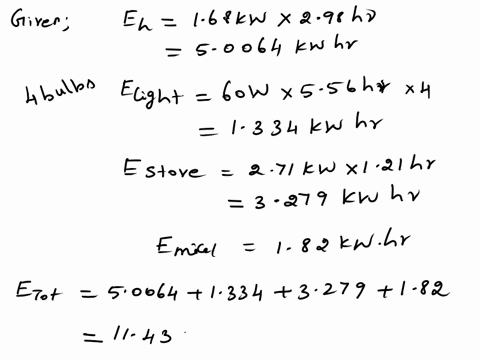 Given; Eh = 1.68kW × 2.98 hr
= 5.0064 kW hr
4 bulbs Elight = 60W × 5.56 hr × 4
= 1.334 kW hr
E stove = 2.71 kW × 1.21 hr
= 3.279 kW hr
Emixel = 1.82 kW.hr
ETot = 5.0064 + 1.334 + 3.279 + 1.82
= 11.43